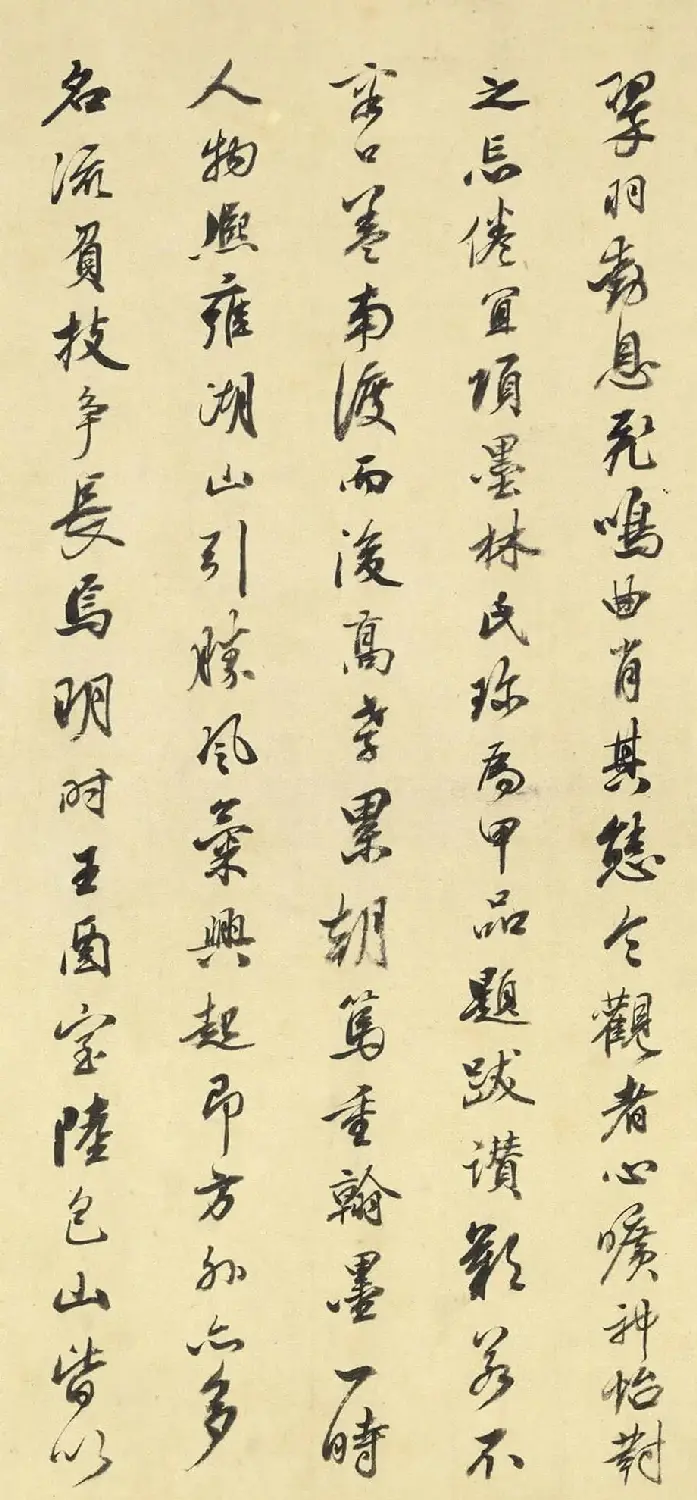 翠羽動息飛鳴曲肖其態令觀者心曠神怡對
之忘倦宜項墨林氏珍為甲品題跋讚歎若不
容口蓋南渡而後高孝累朝篤重翰墨一時
人物熙雍湖山引勝風氣興起即方外亦多
名流負技爭長焉明時王酉室陸包山皆以